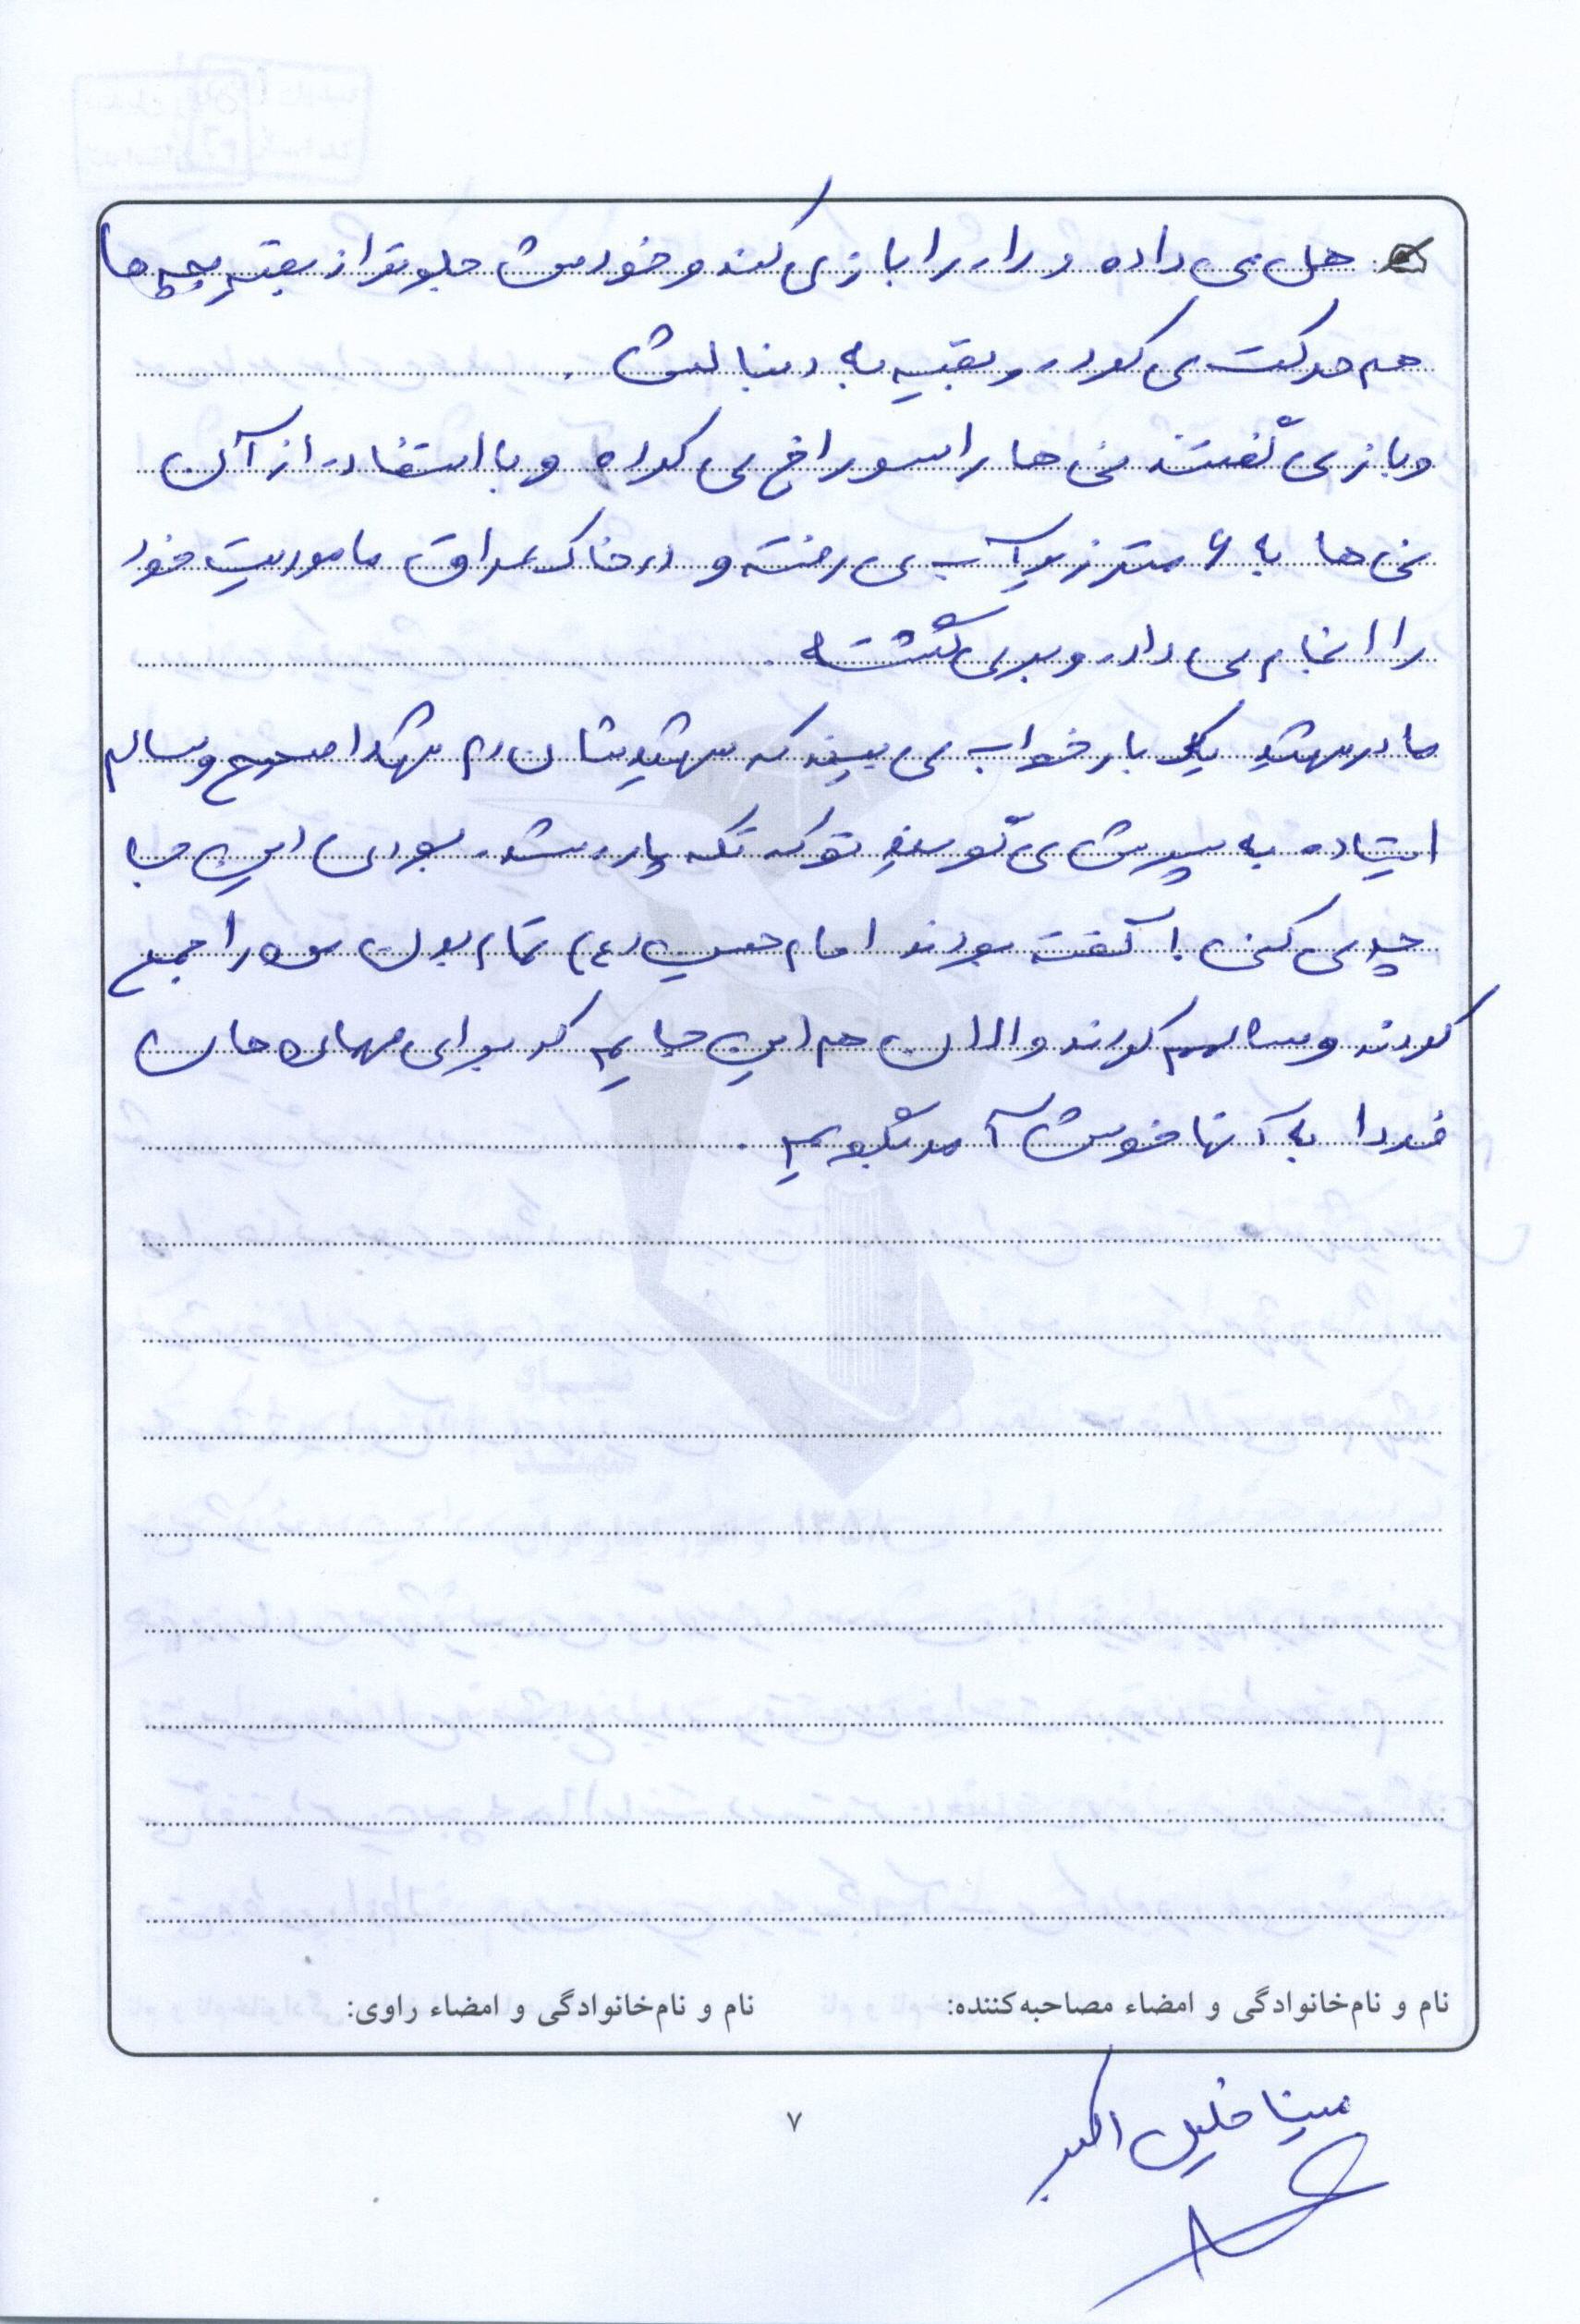 هل می داده و راه را باز می کند و خودش جلوتر از بقیه بچه ها
هم حرکت می کرد و بقیه به دنبالش .
و باز می گفتند نی ها را سوراخ می کرده و با استفاده از آن
نی ها به ۶ متر زیر آب می رفته و در خاک عراق ماموریت خود
را انجام می داد و برمی گشته .
مادر شهید یک بار خواب می بیند که شهیدشان دم شهدا صحیح و سالم
ایستاده به پسرش می گویند تو که تکه پاره شده بودی این جا
چه می کنی ! گفته بودند امام حسین (ع) تمام بدن من را جمع
کردند و سالمم کردند و الان هم این جایم که برای مهمان های
فردا به آنها خوش آمد بگویم .
نام و نام‌خانوادگی و امضاء مصاحبه‌کننده: نام و نام‌خانوادگی و امضاء راوی:
مینا خلیل اکبر
۷